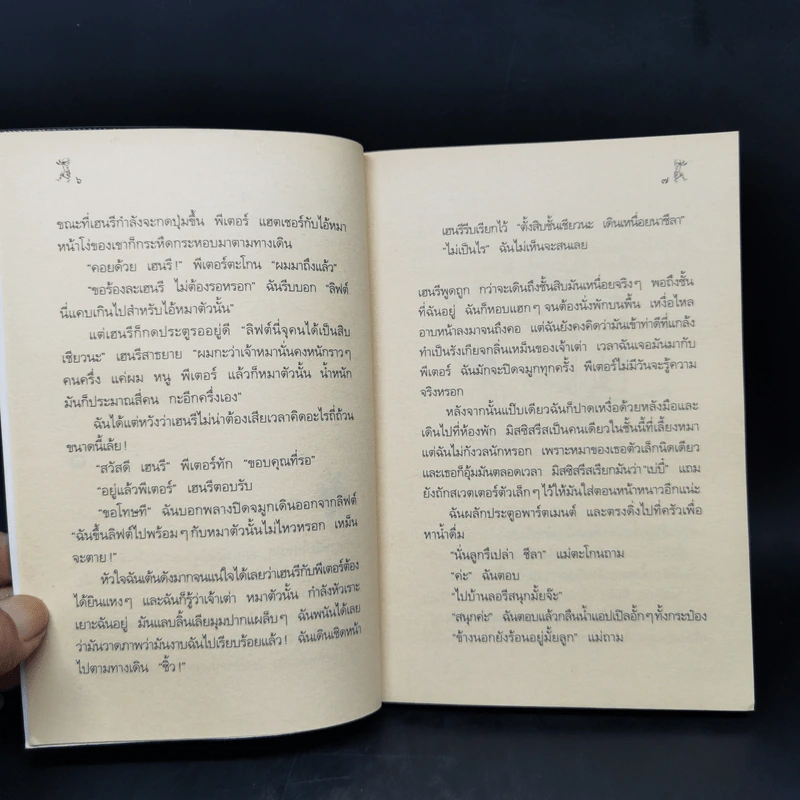 ๖
ขณะที่เฮนรีกำลังจะกดปุ่มขึ้น พีเตอร์ แฮตเชอร์กับไอ้หมา
หน้าโง่ของเขาก็กระหืดกระหอบมาตามทางเดิน
“คอยด้วย เฮนรี!” พีเตอร์ตะโกน “ผมมาถึงแล้ว”
“ขอร้องละเฮนรี ไม่ต้องรอหรอก” ฉันรีบบอก “ลิฟต์
นี่แคบเกินไปสำหรับไอ้หมาตัวนั้น”
แต่เฮนรีก็กดประตูรออยู่ดี “ลิฟต์นี่จุคนได้เป็นสิบ
เชียวนะ” เฮนรีสาธยาย “ผมกะว่าเจ้าหมานั่นคงหนักราวๆ
คนครึ่ง แค่ผม หนู พีเตอร์ แล้วก็หมาตัวนั้น น้ำหนัก
มันก็ประมาณสี่คน กะอีกครึ่งเอง”
ฉันได้แต่หวังว่าเฮนรีไม่น่าต้องเสียเวลาคิดอะไรถี่ถ้วน
ขนาดนี้เล้ย!
“สวัสดี เฮนรี” พีเตอร์ทัก “ขอบคุณที่รอ”
“อยู่แล้วพีเตอร์” เฮนรีตอบรับ
“ขอโทษที” ฉันบอกพลางปิดจมูกเดินออกจากลิฟต์
“ฉันขึ้นลิฟต์ไปพร้อมๆ กับหมาตัวนั้นไม่ไหวหรอก เหม็น
จะตาย!”
หัวใจฉันเต้นดังมากจนแน่ใจได้เลยว่าเฮนรีกับพีเตอร์ต้อง
ได้ยินแหงๆ และฉันก็รู้ว่าเจ้าเต่า หมาตัวนั้น กำลังหัวเราะ
เยาะฉันอยู่ มันแลบลิ้นเลียมุมปากแผล็บๆ ฉันพนันได้เลย
ว่ามันวาดภาพว่ามันงาบฉันไปเรียบร้อยแล้ว! ฉันเดินเชิดหน้า
ไปตามทางเดิน “ชิ้ว!”
๗
เฮนรีรีบเรียกไว้ “ตั้งสิบชั้นเชียวนะ เดินเหนื่อยนาชีลา”
“ไม่เป็นไร” ฉันไม่เห็นจะสนเลย
เฮนรีพูดถูก กว่าจะเดินถึงชั้นสิบมันเหนื่อยจริงๆ พอถึงชั้น
ที่ฉันอยู่ ฉันก็หอบแฮกๆ จนต้องนั่งพักบนพื้น เหงื่อไหล
อาบหน้าลงมาจนถึงคอ แต่ฉันยังคงคิดว่ามันเข้าท่าดีที่แกล้ง
ทำเป็นรังเกียจกลิ่นเหม็นของเจ้าเต่า เวลาฉันเจอมันมากับ
พีเตอร์ ฉันมักจะปิดจมูกทุกครั้ง พีเตอร์ไม่มีวันจะรู้ความ
จริงหรอก
หลังจากนั้นแป๊บเดียวฉันก็ปาดเหงื่อด้วยหลังมือและ
เดินไปที่ห้องพัก มิสซิสรีสเป็นคนเดียวในชั้นนี้ที่เลี้ยงหมา
แต่ฉันไม่กังวลนักหรอก เพราะหมาของเธอตัวเล็กนิดเดียว
และเธอก็อุ้มมันตลอดเวลา มิสซิสรีสเรียกมันว่า “เบบี้” แถม
ยังถักสเวตเตอร์ตัวเล็กๆ ไว้ให้มันใส่ตอนหน้าหนาวอีกแน่ะ
ฉันผลักประตูอพาร์ตเมนต์ และตรงดิ่งไปที่ครัวเพื่อ
หาน้ำดื่ม
“นั่นลูกรึเปล่า ชีลา” แม่ตะโกนถาม
“ค่ะ” ฉันตอบ
“ไปบ้านลอรีสนุกมั้ยจ๊ะ”
“สนุกค่ะ” ฉันตอบแล้วกลืนน้ำแอปเปิลอั้กๆ ทั้งกระป๋อง
“ข้างนอกยังร้อนอยู่มั้ยลูก” แม่ถาม